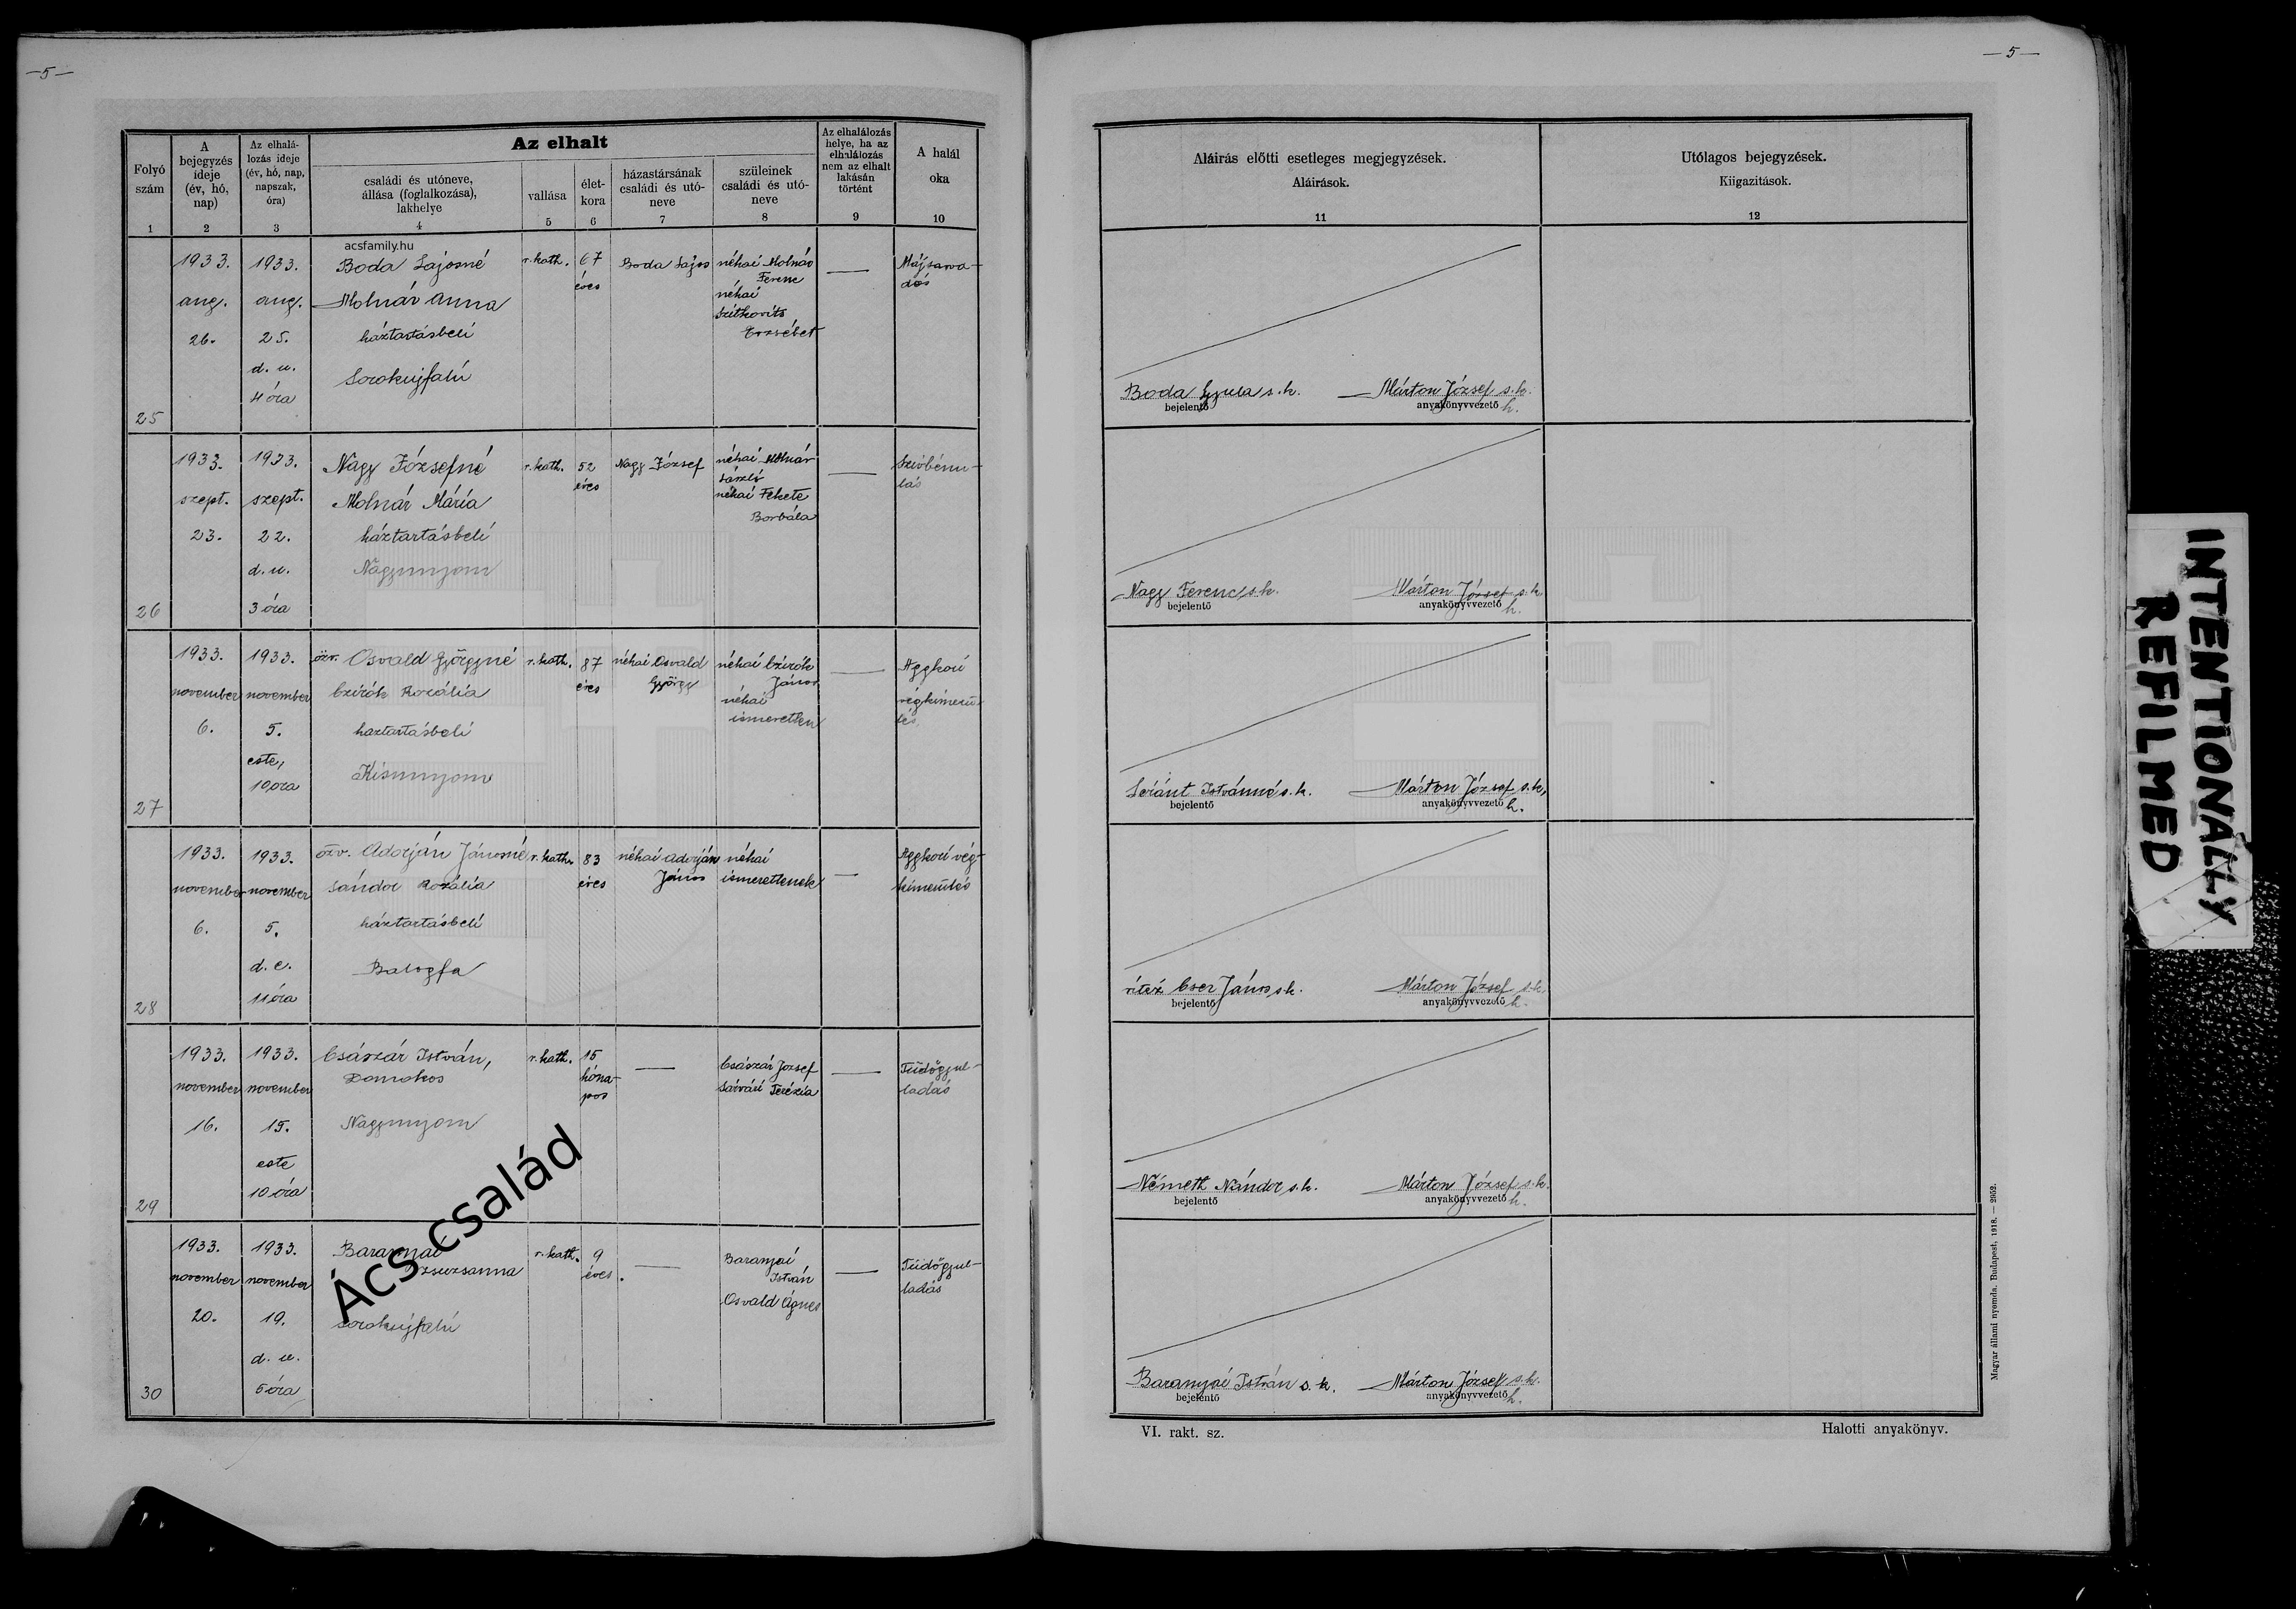 —5—
Folyó szám
A bejegyzés ideje (év, hó, nap)
Az elhalálozás ideje (év, hó, nap, napszak, óra)
Az elhalt
családi és utóneve, állása (foglalkozása), lakhelye
vallása
életkora
házastársának családi és utóneve
szüleinek családi és utóneve
Az elhalálozás helye, ha az elhalálozás nem az elhalt lakásán történt
A halál oka
1 2 3 4 5 6 7 8 9 10
acsfamily.hu
25
1933. aug. 26.
1933. aug. 25. d. u. 4 óra
Boda Lajosné
Molnár Anna
háztartásbeli
Sorokujfalú
r. kath.
67 éves
Boda Lajos
néhai Molnár Ferenc
néhai
Erzsébet
—
Májsorva-
dás
26
1933. szept. 23.
1933. szept. 22. d. u. 3 óra
Nagy Józsefné
Molnár Mária
háztartásbeli
Nagyunyom
r. kath.
52 éves
Nagy József
néhai Molnár
László
néhai Fekete
Borbála
—
Szívbénu-
lás
27
1933. november 6.
1933. november 5. este, 10 óra
özv. Osvald Györgyné
Czirók Rozália
háztartásbeli
Kisunyom
r. kath.
87 éves
néhai Osvald
György
néhai Czirók
János
néhai
ismeretlen
—
Aggkori
végkimerü-
lés
28
1933. november 6.
1933. november 5. d. e. 11 óra
özv. Adorján Jánosné
Sándor Rozália
háztartásbeli
Balogfa
r. kath.
83 éves
néhai Adorján
János
néhai
ismeretlenek
—
Aggkori vég-
kimerülés
29
1933. november 16.
1933. november 15. este 10 óra
Császár István,
Domokos
Nagyunyom
r. kath.
15
hóna-
pos
—
Császár József
Sárvári Terézia
—
Tüdőgyul-
ladás
30
1933. november 20.
1933. november 19. d. u. 5 óra
Baranyai
Zsuzsanna
Sorokujfalú
r. kath.
9
éves.
—
Baranyai
István
Osvald Ágnes
—
Tüdőgyul-
ladás
Ács család
—5—
Aláírás előtti esetleges megjegyzések.
Aláírások.
11
Utólagos bejegyzések.
Kiigazítások.
12
Boda Gyula s. k. Márton József s. k.
bejelentő anyakönyvvezető h.
Nagy Ferenc s. k. Márton József s. k.
bejelentő anyakönyvvezető h.
Istvánné s. k. Márton József s. k.
bejelentő anyakönyvvezető h.
vitéz Cser János s. k. Márton József s. k.
bejelentő anyakönyvvezető h.
Németh Nándor s. k. Márton József s. k.
bejelentő anyakönyvvezető h.
Baranyai István s. k. Márton József s. k.
bejelentő anyakönyvvezető h.
VI. rakt. sz.
Halotti anyakönyv.
Magyar állami nyomda. Budapest, 1918. — 2952.
INTENTIONALLY
REFILMED